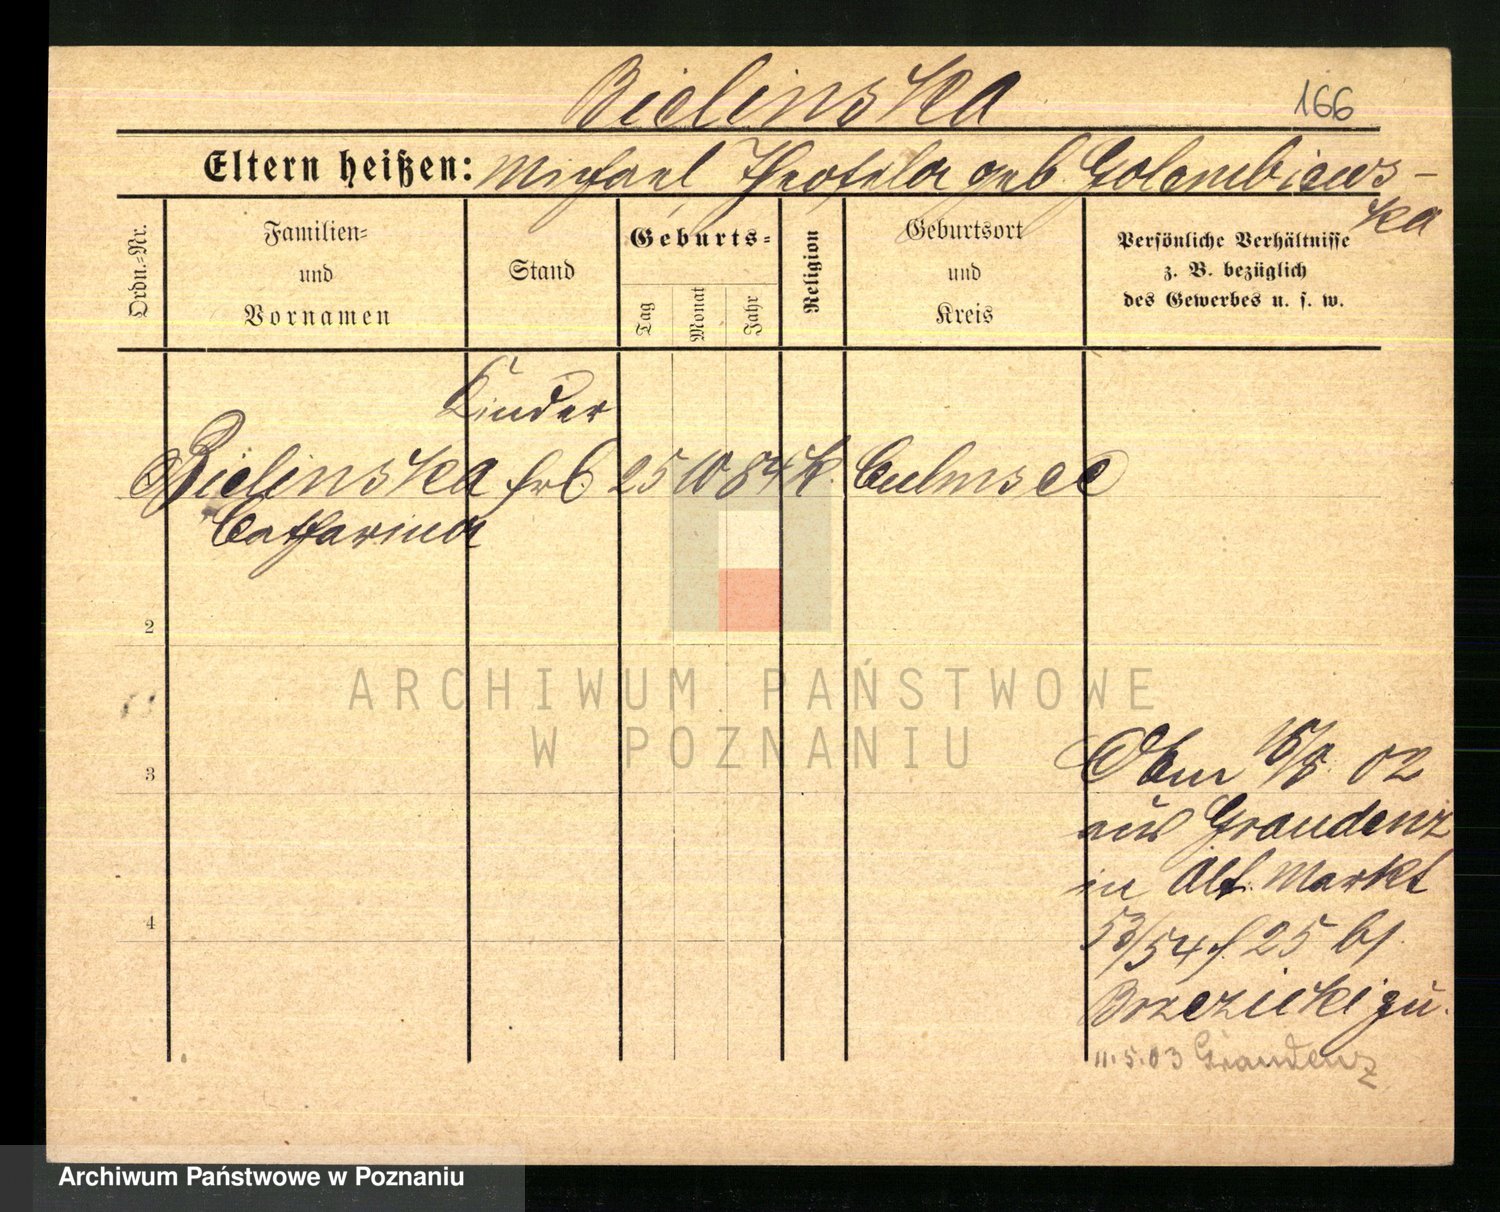 Bielinska
166
Eltern heißen: Michael, Theofela geb. Golembiews-
ka
Ordn.-Nr.
Familien-
und
Vornamen
Stand
Geburts-
Tag
Monat
Jahr
Religion
Geburtsort
und
Kreis
Persönliche Verhältnisse
z. B. bezüglich
des Gewerbes u. s. w.
Kinder
Bielinska 25 10 84 k. Culmsee
Catharina
2
ARCHIWUM PAŃSTWOWE
W POZNANIU
3
02
aus Graudenz
in Alt. Markt
53/54 25 bei
Brzezicki zu.
4
11.5.03 Graudenz
Archiwum Państwowe w Poznaniu